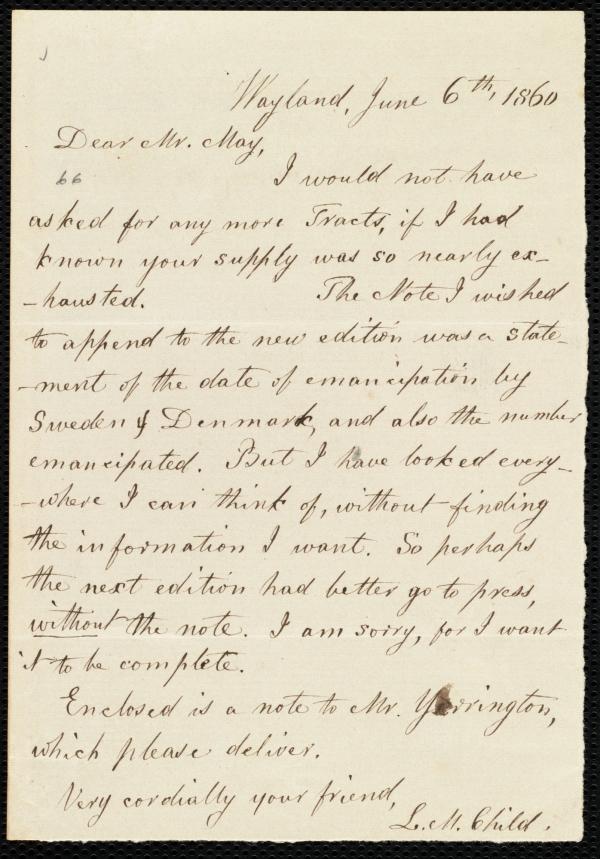 Wayland, June 6th, 1860
Dear Mr. May,
66
I would not have
asked for any more Tracts, if I had
known your supply was so nearly ex-
-hausted. The Note I wished
to append to the new edition was a state-
-ment of the date of emancipation by
Sweden & Denmark, and also the number
emancipated. But I have looked every-
-where I can think of, without finding
the information I want. So perhaps
the next edition had better go to press,
without the note. I am sorry, for I want
it to be complete.
Enclosed is a note to Mr. Yerrington,
which please deliver.
Very cordially your friend,
L. M. Child.